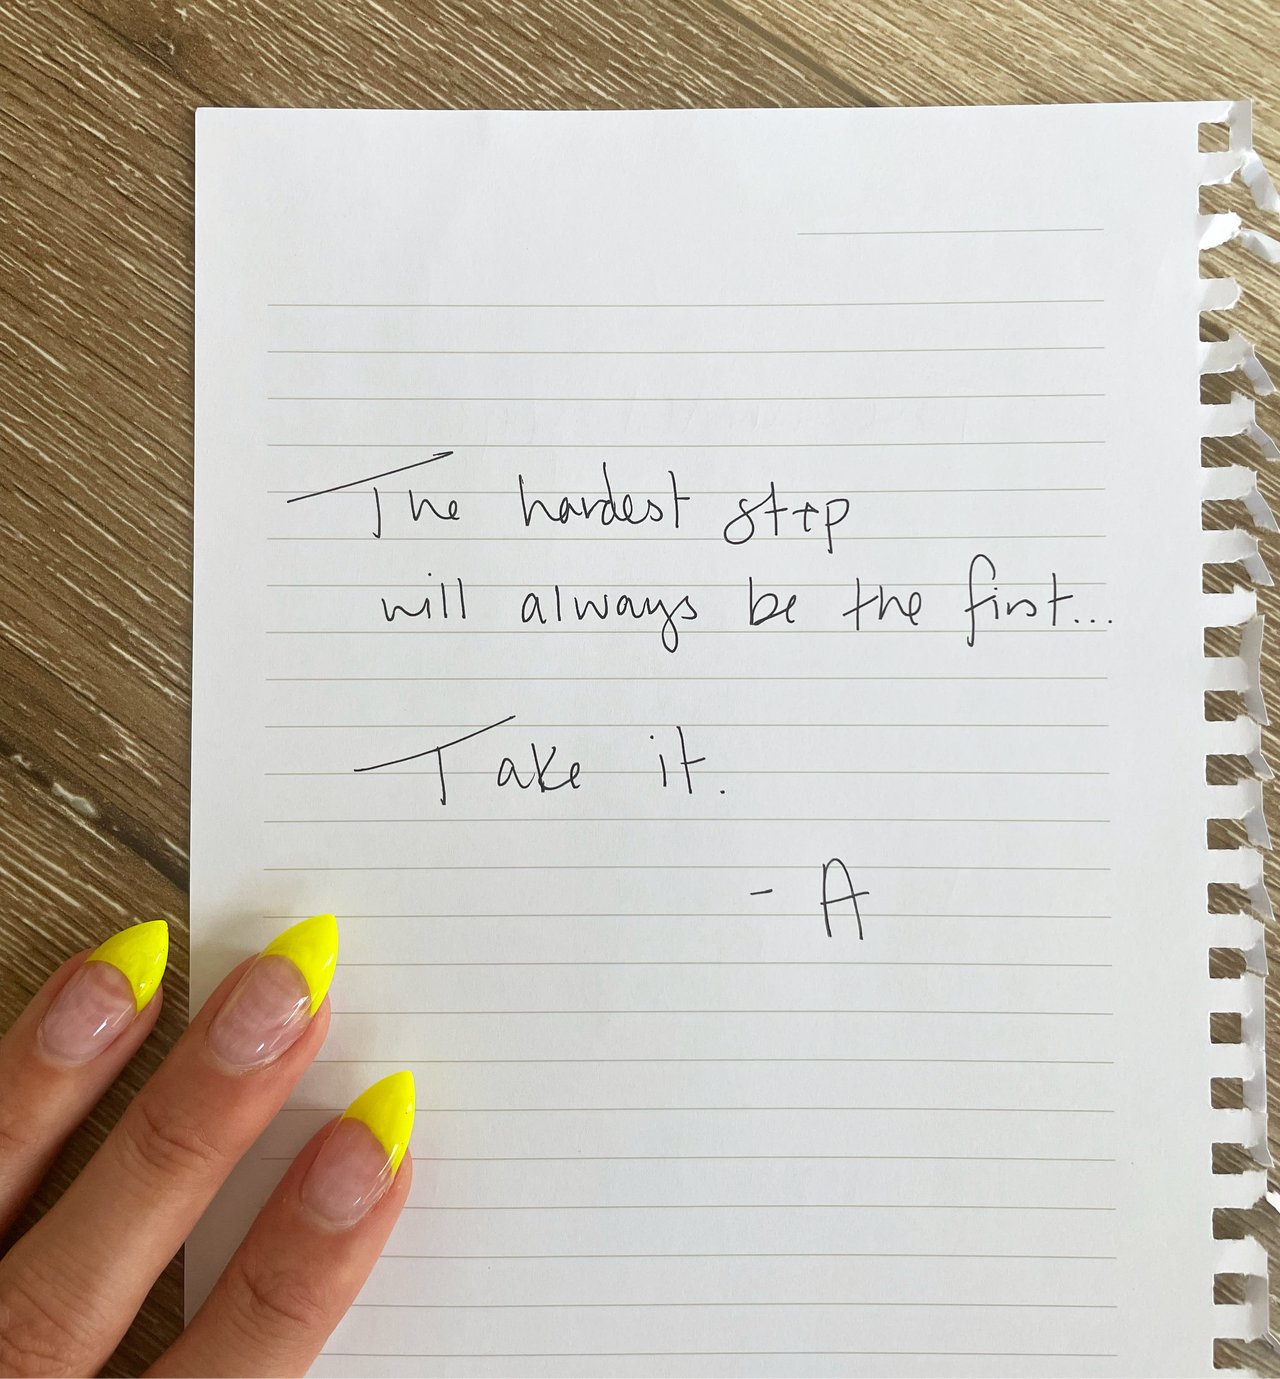 The hardest step
will always be the first...
Take it.
- A